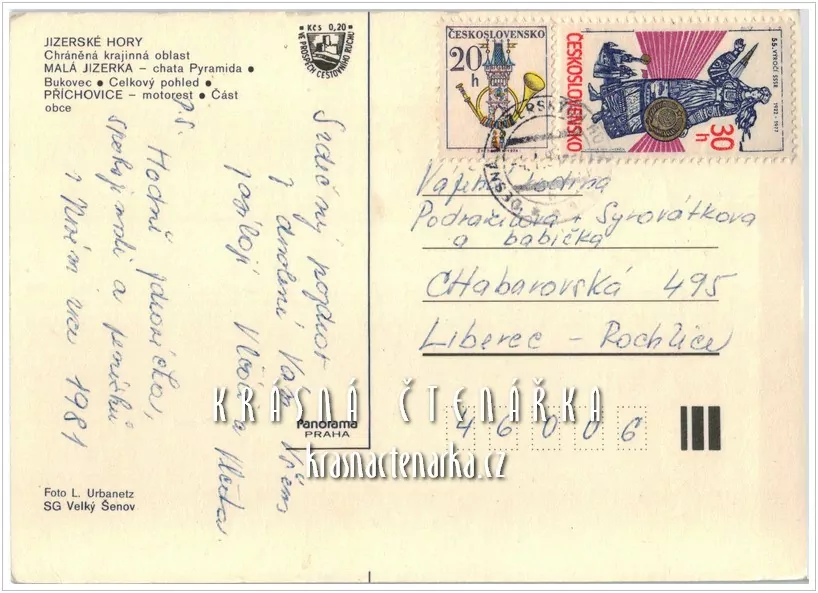 JIZERSKÉ HORY
Chráněná krajinná oblast
MALÁ JIZERKA – chata Pyramida •
Bukovec • Celkový pohled •
PŘÍCHOVICE – motorest • Část
obce
Kčs 0,20
VE PROSPĚCH CESTOVNÍHO RUCHU
ČESKOSLOVENSKO
20
h
ČESKOSLOVENSKO
30
h
55. VÝROČÍ SSSR
1922-1977
DESNÁ
Srdečný pozdrav
z dovolené Vám Všem
posílají Vlasta
P.S. Hodně zdravíčka,
spokojenosti a peníšků
v Novém roce 1981
rodina
Podrazilova + Syrovátkova
a babička
CHabarovská 495
Liberec – Rochlice
46006
Panorama
PRAHA
Foto L. Urbanetz
SG Velký Šenov
KRÁSNÁ ČTENÁŘKA
krasnactenarka.cz